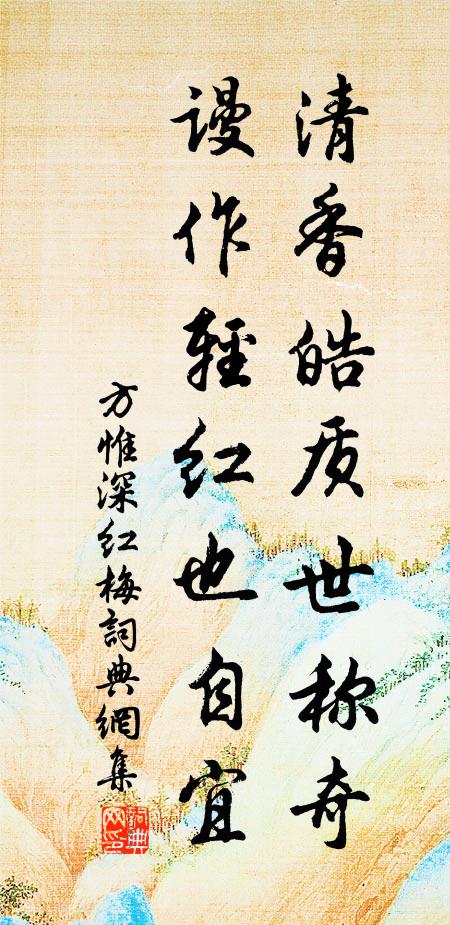 清香皓质世称奇
谩作輕红也自宜
方惟深红梅詞典網集
詞典
网印